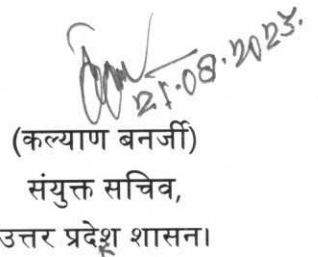 21.08.2023.
(कल्याण बनर्जी)
संयुक्त सचिव,
उत्तर प्रदेश शासन।